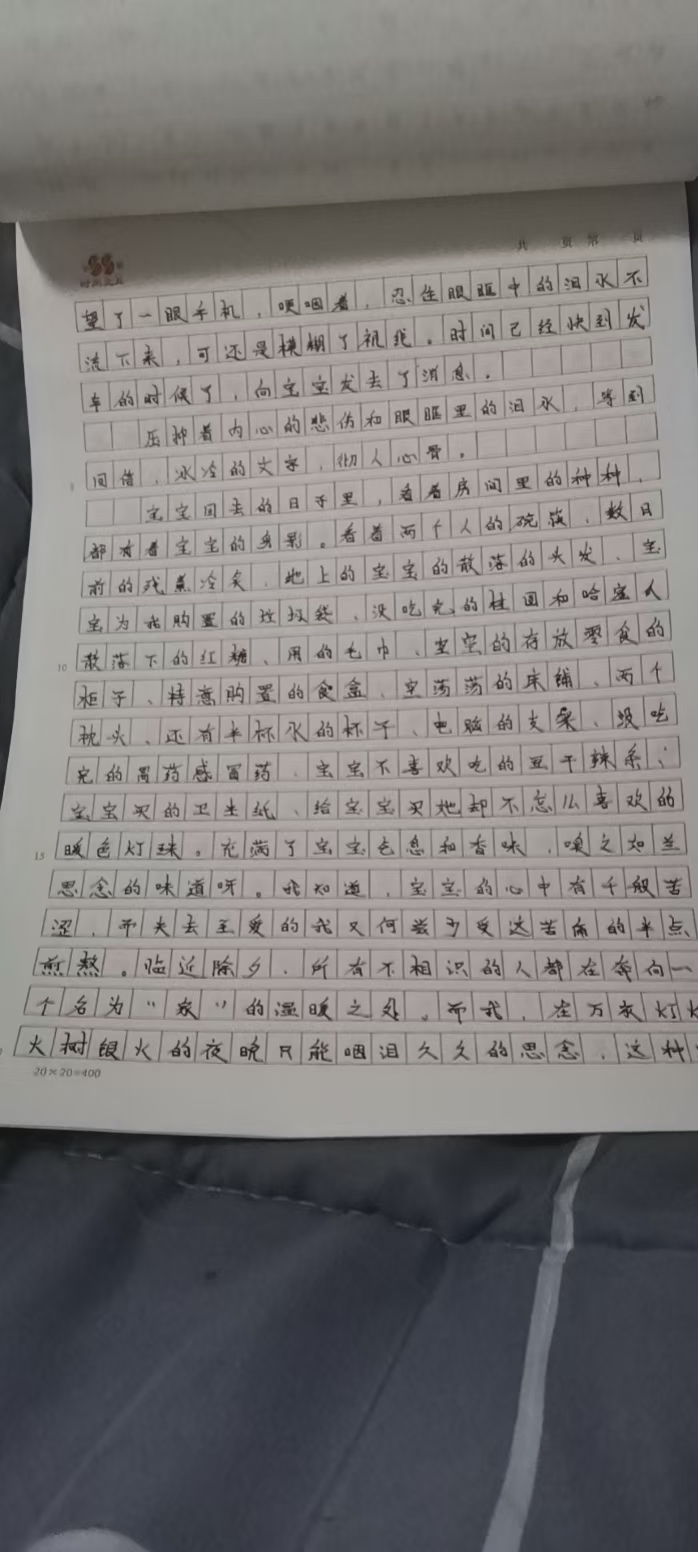 共 页 第 页
时光文具
望了一眼手机，哽咽着，忍住眼眶中的泪水不
流下来，可还是模糊了视线。时间已经快到发
车的时候了，向宝宝发去了消息。
压抑着内心的悲伤和眼眶里的泪水，等到
回信，冰冷的文字，彻人心骨。
5
宝宝回去的日子里，看着房间里的种种，
都有着宝宝的身影。看着两个人的碗筷、数日
前的残羹冷炙、地上的宝宝的散落的头发、宝
宝为我购置的垃圾袋、没吃完的桂圆和哈宝人
散落下的红糖、用的毛巾、空空的存放零食的
10
柜子、特意购置的食盒、空荡荡的床铺、两个
枕头、还有半杯水的杯子、电脑的支架、没吃
完的胃药感冒药、宝宝不喜欢吃的豆干辣条；
宝宝买的卫生纸、给宝宝买她却不怎么喜欢的
暖色灯球。充满了宝宝气息和香味，嗅之如兰
15
思念的味道呀。我知道，宝宝的心中有千般苦
涩，而失去至爱的我又何尝少受这苦痛的半点
煎熬。临近除夕，所有不相识的人都在奔向一
个名为“家”的温暖之处。而我，在万家灯火
火树银火的夜晚只能咽泪久久的思念，这种
20×20=400